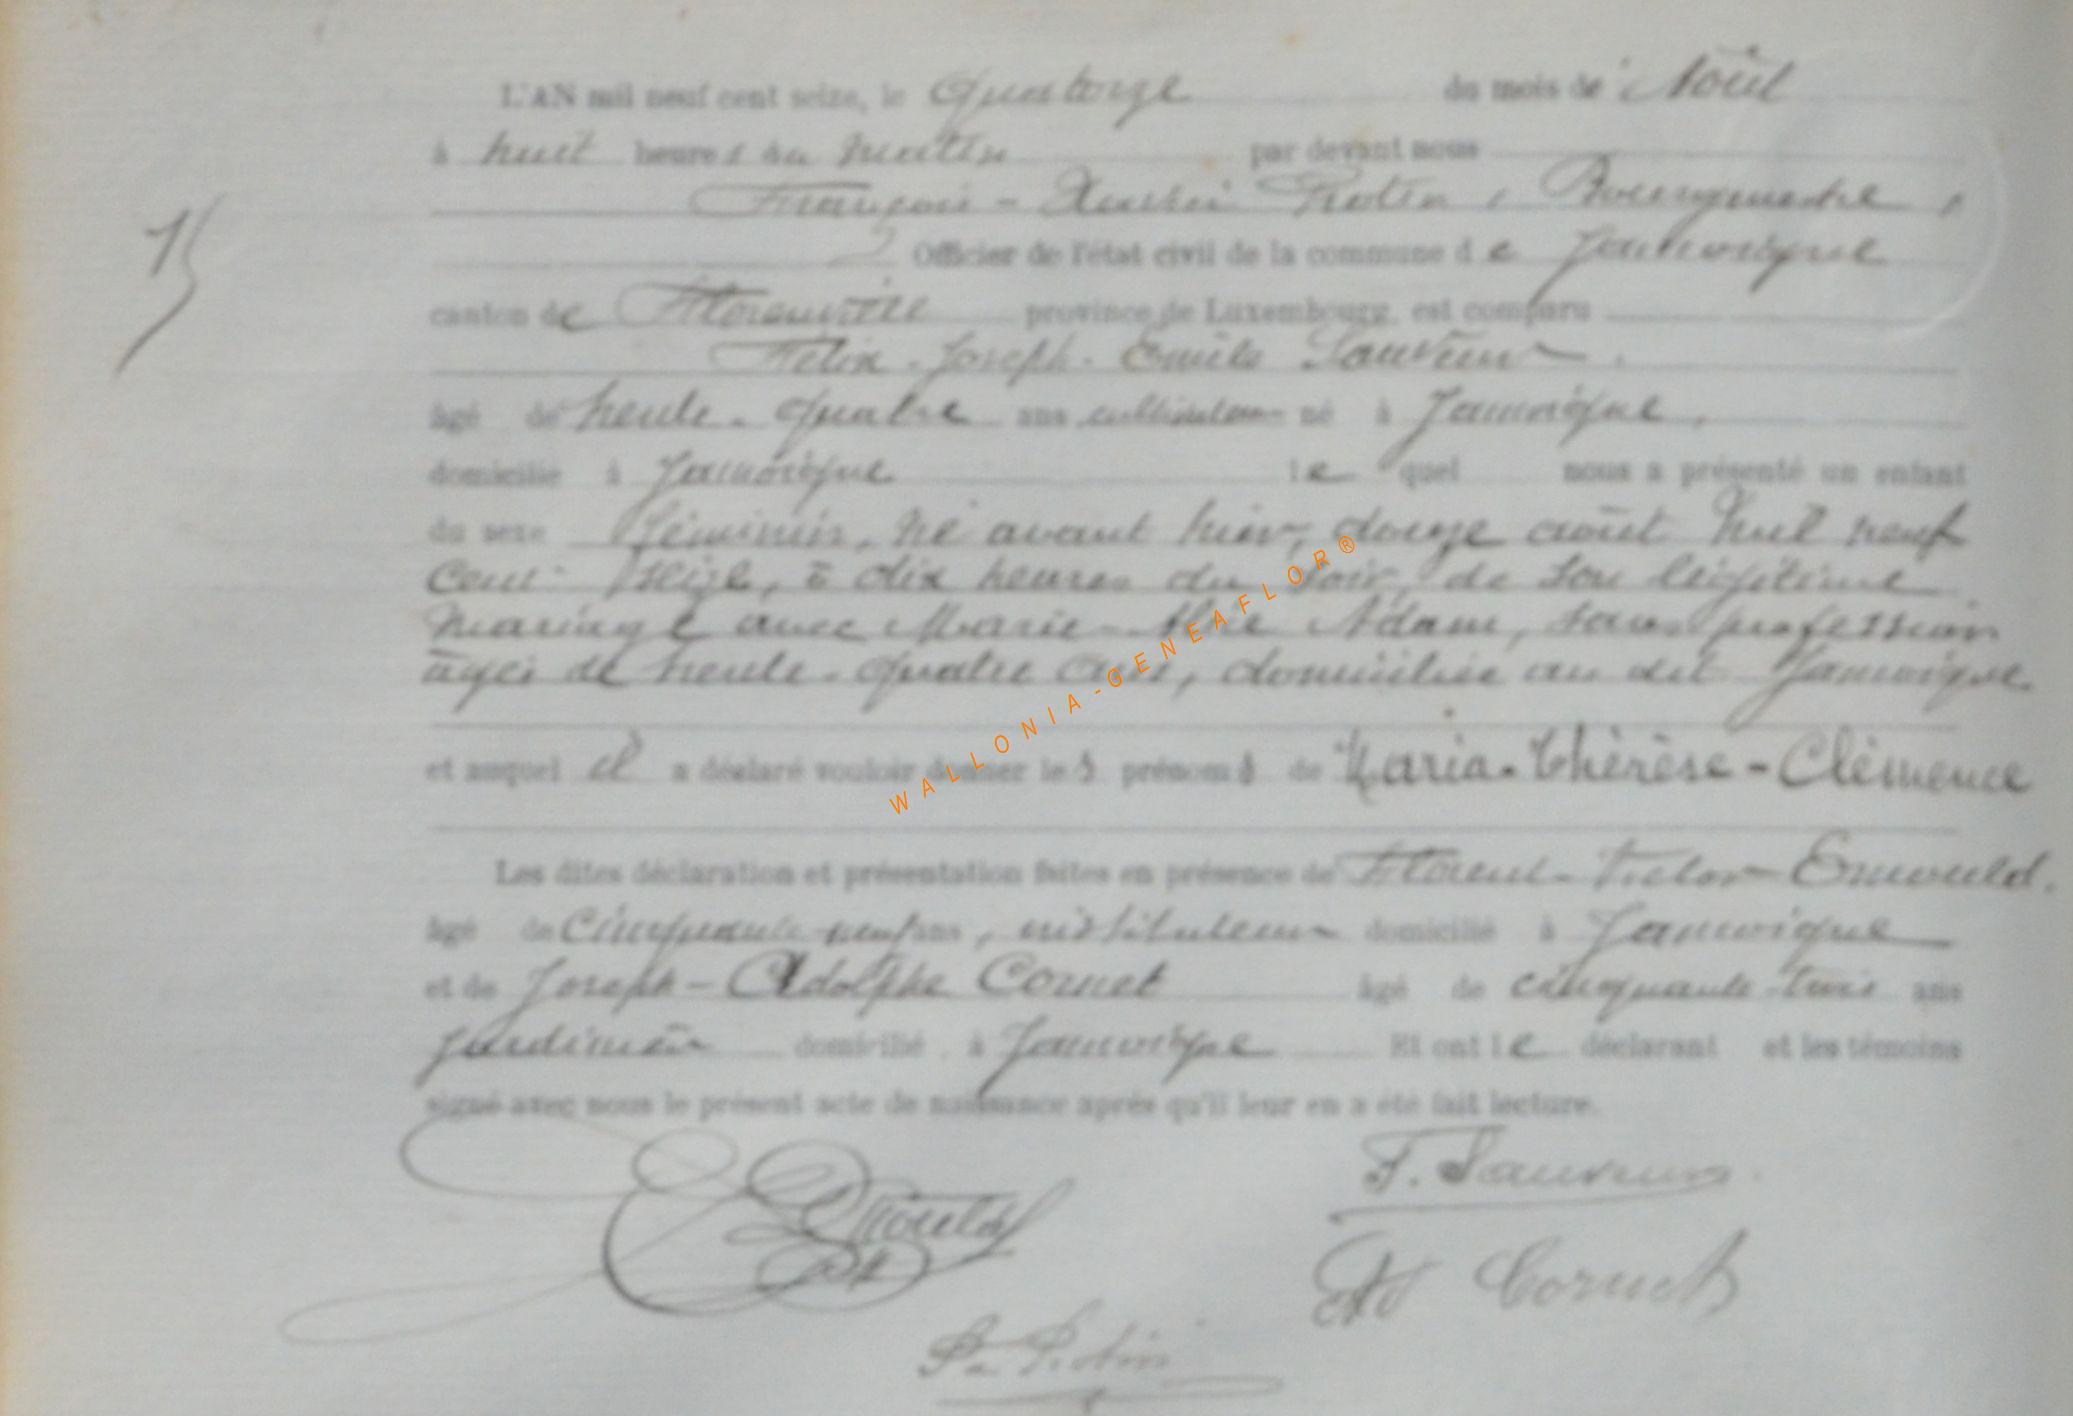 L'AN mil neuf cent seize, le Quatorze du mois de Août
à huit heures du matin par devant nous
François-Xavier, Bourgmestre,
15
Officier de l'état civil de la commune de Jamoigne
canton de Florenville province de Luxembourg, est comparu
Félix-Joseph-Emile Sauveur
âgé de trente-quatre ans cultivateur né à Jamoigne,
domicilié à Jamoigne lequel nous a présenté un enfant
du sexe féminin, né avant hier, douze août mil neuf
cent seize, à dix heures du soir, de son légitime
mariage avec Marie- Adam, sans profession
âgée de trente-quatre ans, domiciliée au dit Jamoigne.
et auquel il a déclaré vouloir donner les prénoms de Maria-Thérèse-Clémence
Les dites déclaration et présentation faites en présence de Florent-Victor-
âgé de cinquante-neuf ans, instituteur domicilié à Jamoigne
et de Joseph-Adolphe Cornet âgé de cinquante-trois ans
jardinier domicilié à Jamoigne Et ont le déclarant et les témoins
signé avec nous le présent acte de naissance après qu'il leur en a été fait lecture.
F. Sauveur
Ad Cornet
WALLONIA-GENEAFLOR®